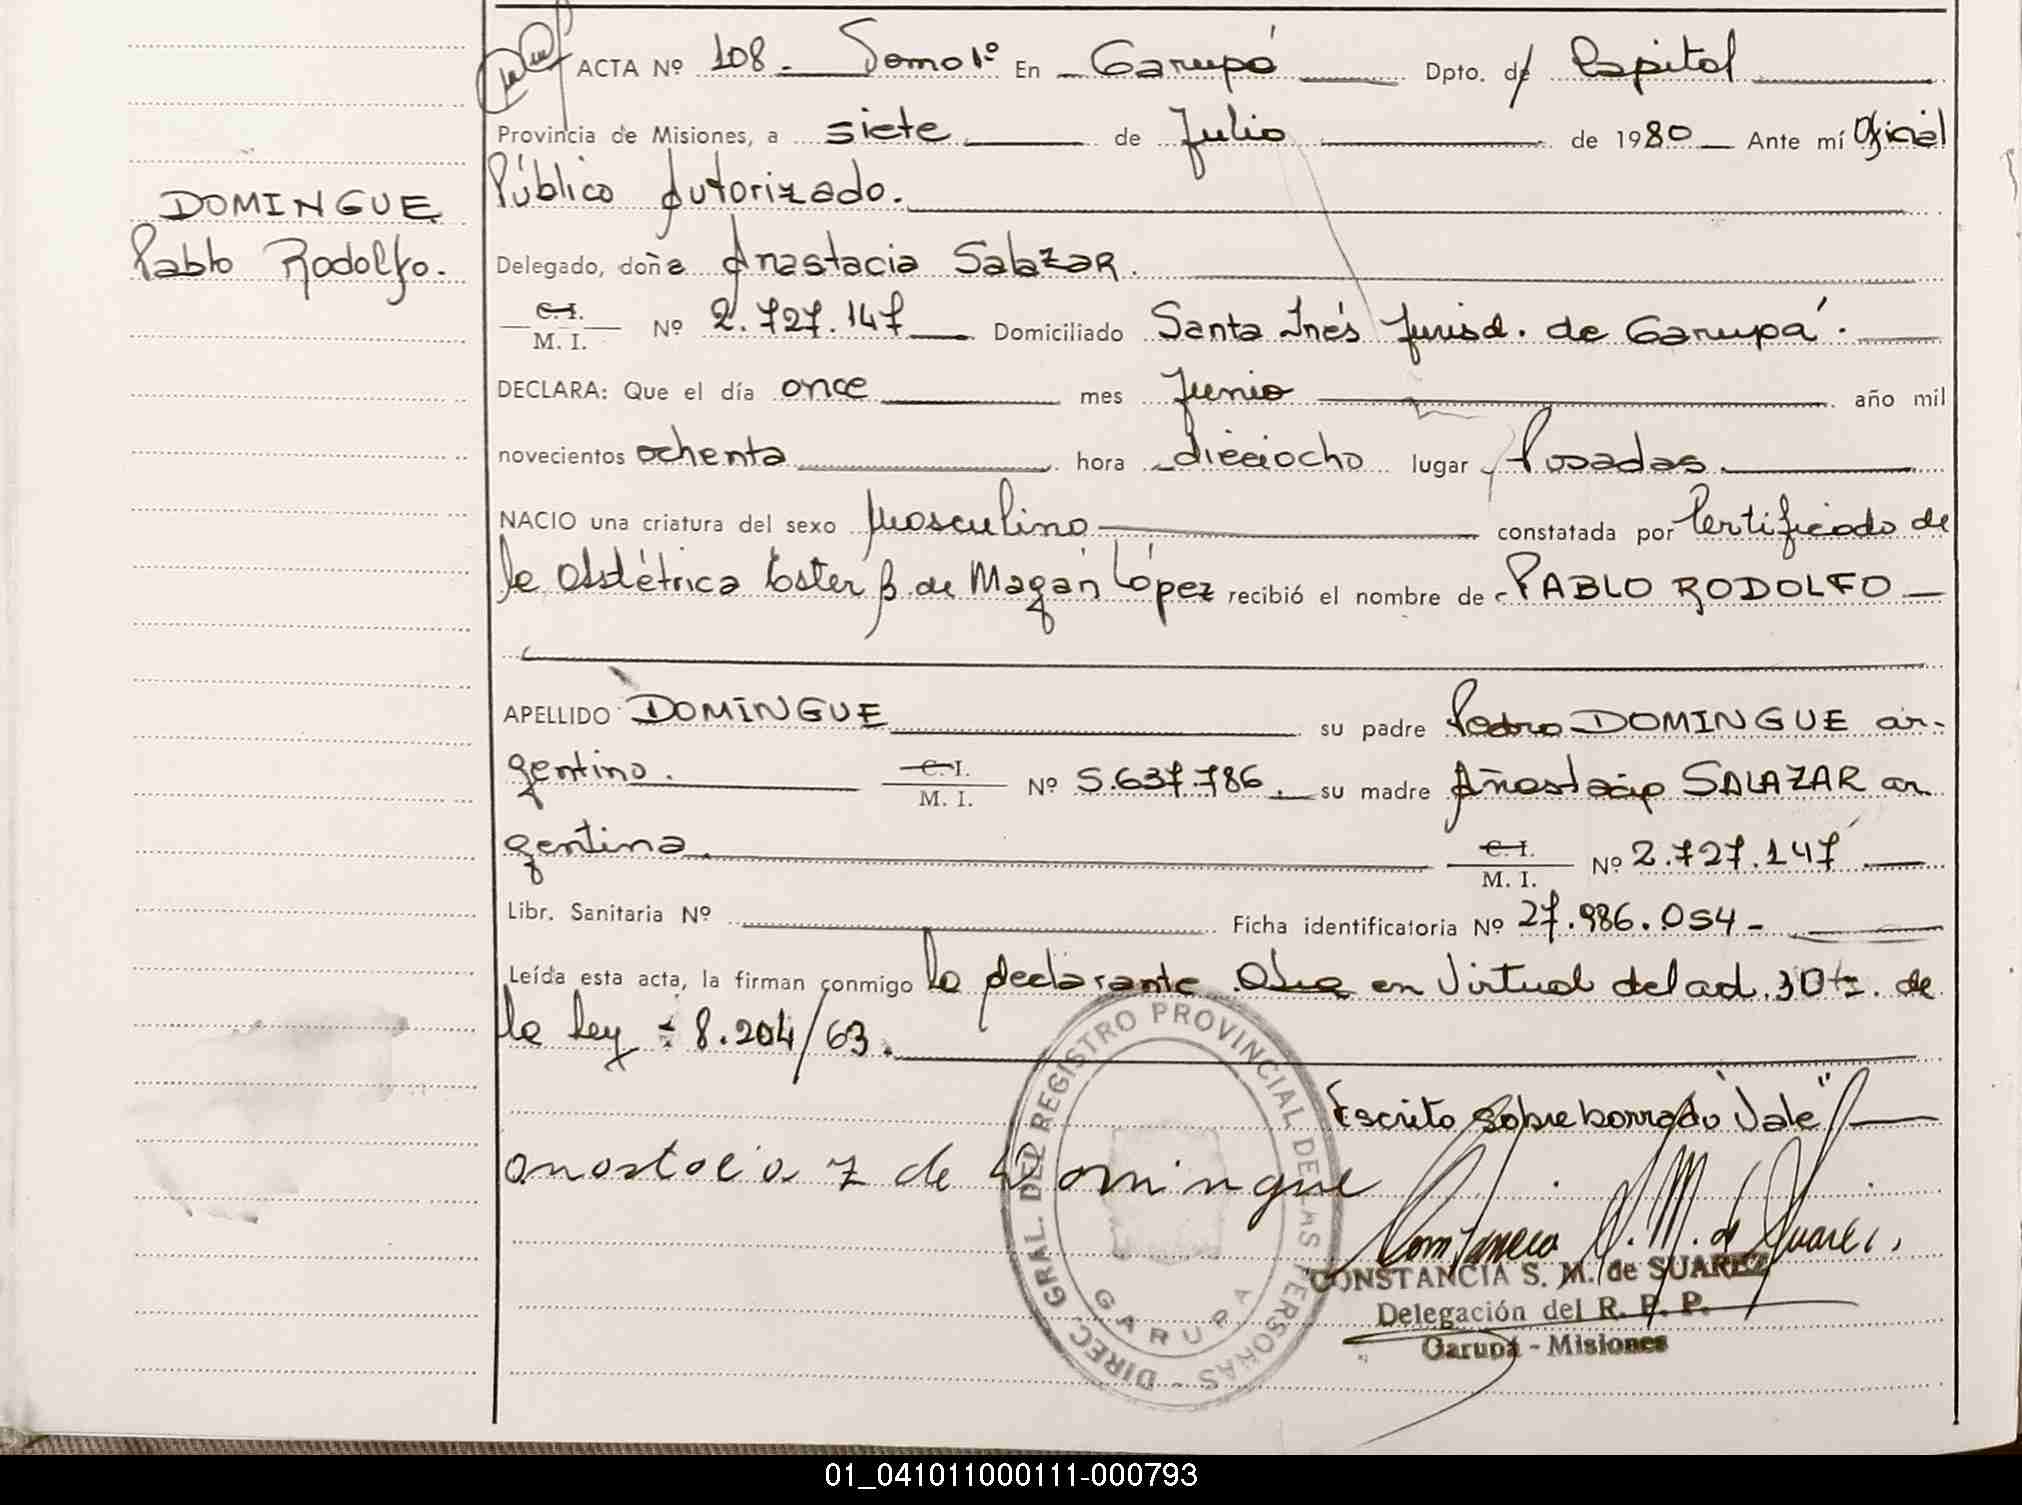 ACTA Nº 108. Tomo 1º En Garupá Dpto. de Capital
Provincia de Misiones, a siete de Julio de 1980 Ante mí Oficial
Público Autorizado.
DOMINGUE
Pablo Rodolfo.
Delegado, doña Anastacia Salazar.
C. I.
M. I. Nº 2.727.147 Domiciliado Santa Inés Jurisd. de Garupá.
DECLARA: Que el día once mes Junio año mil
novecientos ochenta hora dieciocho lugar Posadas
NACIO una criatura del sexo Masculino constatada por Certificado de
la Obstétrica Ester B. de Magán López recibió el nombre de PABLO RODOLFO
APELLIDO DOMINGUE su padre Pedro DOMINGUE ar-
gentino. C. I. M. I. Nº 5.637.786. su madre Añastacia SALAZAR ar
gentina. C. I. M. I. Nº 2.727.147
Libr. Sanitaria Nº Ficha identificatoria Nº 27.986.054-
Leída esta acta, la firman conmigo la declarante en Virtual del ad. 30 de
la ley 8.204/63.
Escrito sobreborrado "Vale"
anastacia z de Domingue
DIREC. GRAL. DEL REGISTRO PROVINCIAL DE LAS PERSONAS -
GARUPA
CONSTANCIA S. M. de SUAREZ
Delegación del R. P. P.
Garupá - Misiones
01_041011000111-000793